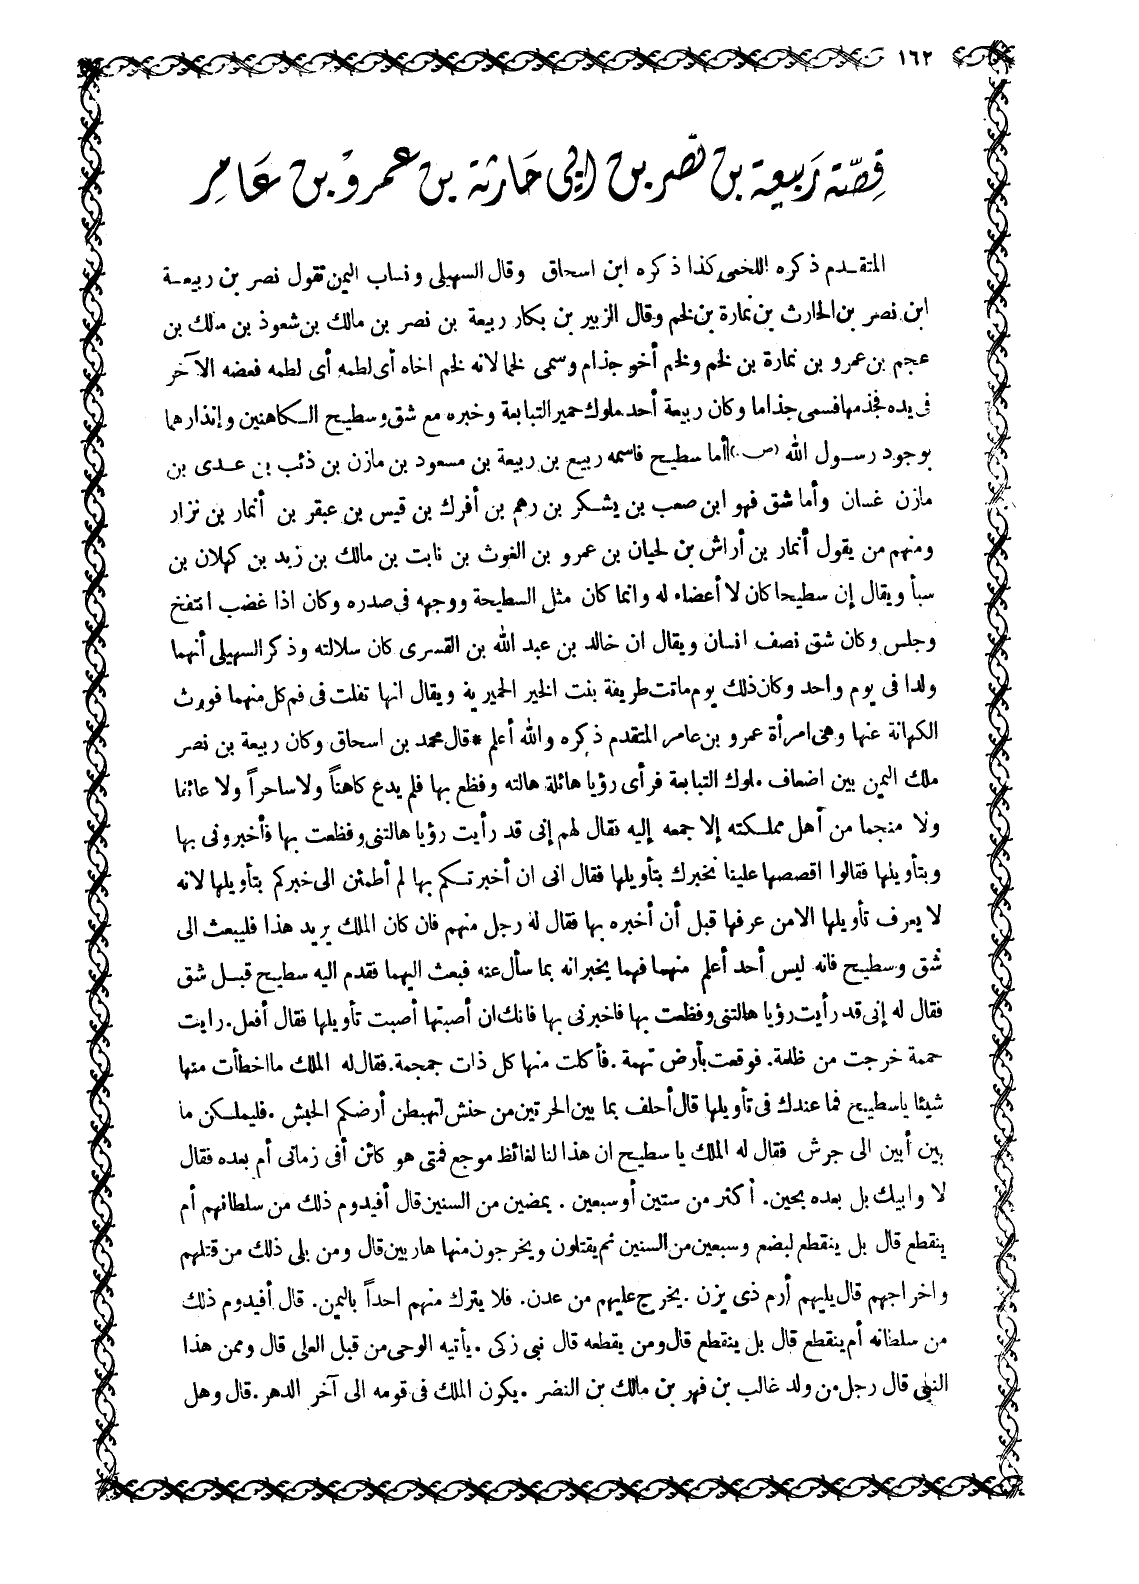 ١٦٢
قِصّة رَبيعة بن نصر بن ابي حَارثة بن عمرو بن عَامِر
المتقدم ذكره اللخمي كذا ذكره ابن اسحاق وقال السهيلى ونساب اليمن تقول نصر بن ربيعة
ابن نصر بن الحارث بن نمارة بن لخم وقال الزبير بن بكار ربيعة بن نصر بن مالك بن شعوذ بن مالك بن
عجم بن عمرو بن نمارة بن لخم ولخم أخو جذام وسمى لخما لانه لخم اخاه أى لطمه أى لطمه فعضه الآخر
فى يده فجذمها فسمى جذاما وكان ربيعة أحد ملوك حمير التبابعة وخبره مع شق وسطيح الكاهنين وإنذارهما
بوجود رسول الله (ص.) أما سطيح فاسمه ربيع بن ربيعة بن مسعود بن مازن بن ذئب بن عدى بن
مازن غسان وأما شق فهو ابن صعب بن يشكر بن رهم بن أفرك بن قيس بن عبقر بن أنمار بن نزار
ومنهم من يقول أنمار بن أراش بن لحيان بن عمرو بن الغوث بن نابت بن مالك بن زيد بن كهلان بن
سبأ ويقال إن سطيحا كان لا أعضاء له وانما كان مثل السطيحة ووجهه فى صدره وكان اذا غضب انتفخ
وجلس وكان شق نصف انسان ويقال ان خالد بن عبد الله بن القسرى كان سلالته وذكر السهيلى أنهما
ولدا فى يوم واحد وكان ذلك يوم ماتت طريفة بنت الخير الحميرية ويقال انها تفلت فى فم كل منهما فورث
الكهانة عنها وهى امرأة عمرو بن عامر المتقدم ذكره والله أعلم * قال محمد بن اسحاق وكان ربيعة بن نصر
ملك اليمن بين اضعاف ملوك التبابعة فرأى رؤيا هائلة هالته وفظع بها فلم يدع كاهناً ولا ساحراً ولا عائفا
ولا منجما من أهل مملكته إلا جمعه إليه فقال لهم إنى قد رأيت رؤيا هالتنى وفظعت بها فأخبرونى بها
وبتأويلها فقالوا اقصصها علينا نخبرك بتأويلها فقال انى ان أخبرتكم بها لم أطمئن الى خبركم بتأويلها لانه
لا يعرف تأويلها الا من عرفها قبل أن أخبره بها فقال له رجل منهم فان كان الملك يريد هذا فليبعث الى
شق وسطيح فانه ليس أحد أعلم منهما فهما يخبرانه بما سأل عنه فبعث اليهما فقدم اليه سطيح قبل شق
فقال له إنى قد رأيت رؤيا هالتنى وفظعت بها فاخبرنى بها فانك ان أصبتها أصبت تأويلها فقال أفعل. رايت
حممة خرجت من ظلمة. فوقعت بأرض تهمة. فأكلت منها كل ذات جمجمة. فقال له الملك ما اخطأت منها
شيئا يا سطيح فما عندك فى تأويلها قال أحلف بما بين الحرتين من حنش لتهبطن أرضكم الحبش. فليملكن ما
بين أبين الى جرش فقال له الملك يا سطيح ان هذا لنا لغائظ موجع فمتى هو كائن أفى زمانى أم بعده فقال
لا وابيك بل بعده بحين. أكثر من ستين أو سبعين. يمضين من السنين قال أفيدوم ذلك من سلطانهم أم
ينقطع قال بل ينقطع لبضع وسبعين من السنين ثم يقتلون ويخرجون منها هاربين قال ومن يلى ذلك من قتلهم
واخراجهم قال يليهم أرم ذى يزن. يخرج عليهم من عدن. فلا يترك منهم احداً باليمن. قال أفيدوم ذلك
من سلطانه أم ينقطع قال بل ينقطع قال ومن يقطعه قال نبى زكى. يأتيه الوحى من قبل العلى قال وممن هذا
النبى قال رجل من ولد غالب بن فهر بن مالك بن النضر. يكون الملك فى قومه الى آخر الدهر. قال وهل